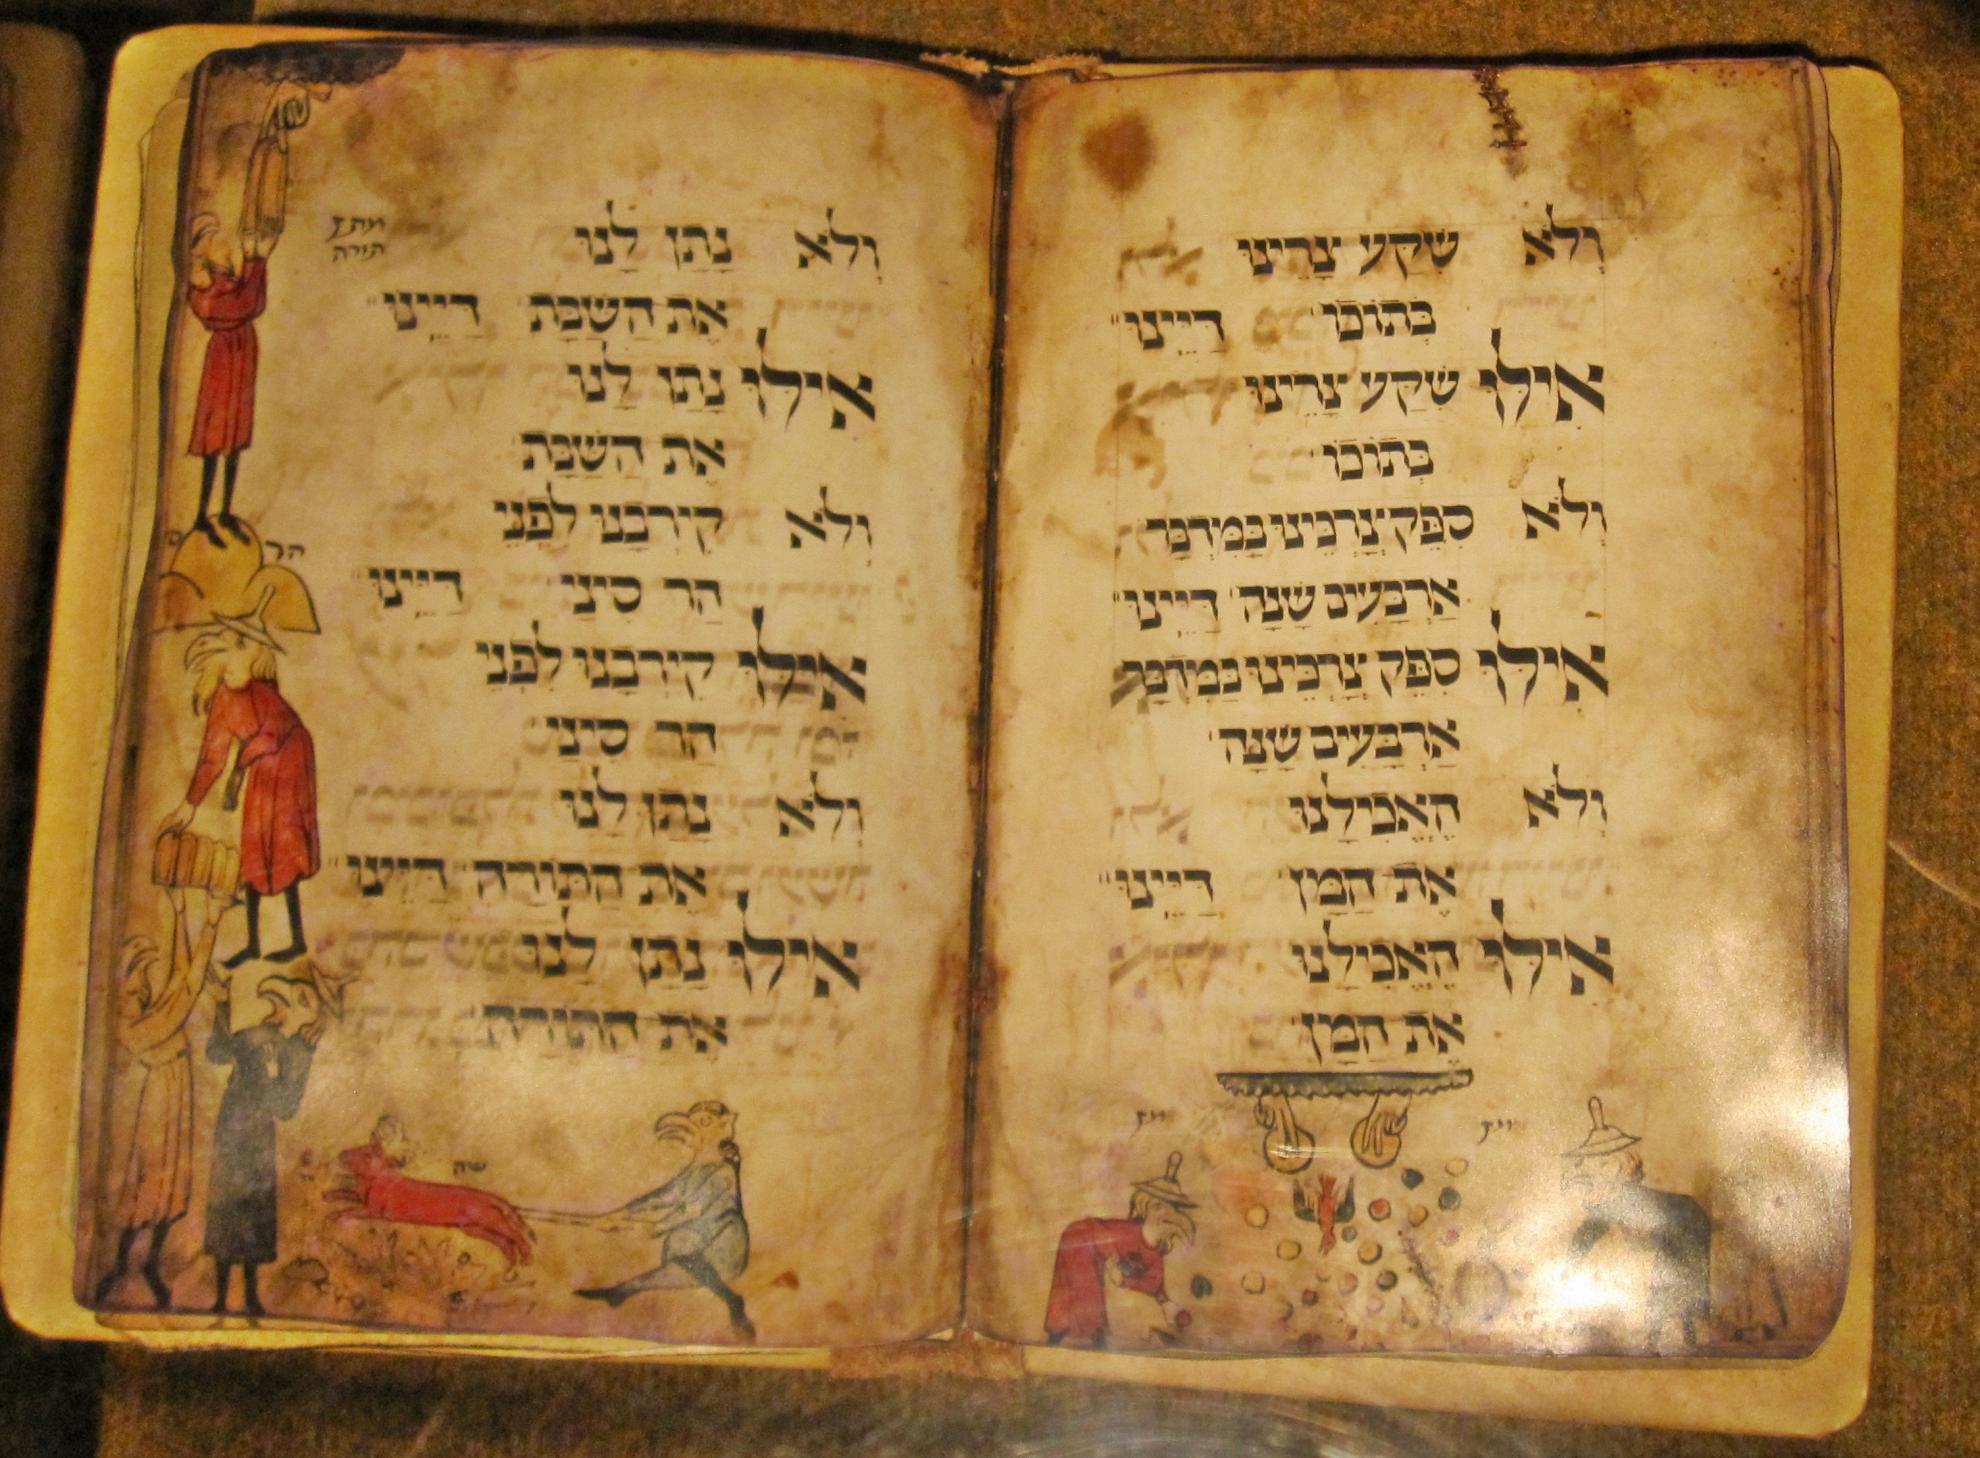 וְלֹא שִׁקַּע צָרֵינוּ
בְּתוֹכוֹ דַּיֵּינוּ
אִילּוּ שִׁקַּע צָרֵינוּ
בְּתוֹכוֹ
וְלֹא סִפֵּק צָרְכֵּינוּ בַּמִּדְבָּר
אַרְבָּעִים שָׁנָה דַּיֵּינוּ
אִילּוּ סִפֵּק צָרְכֵּינוּ בַּמִּדְבָּר
אַרְבָּעִים שָׁנָה
וְלֹא הֶאֱכִילָנוּ
אֶת הַמָּן דַּיֵּינוּ
אִילּוּ הֶאֱכִילָנוּ
אֶת הַמָּן
מן
מן
וְלֹא נָתַן לָנוּ
אֶת הַשַּׁבָּת דַּיֵּינוּ
אִילּוּ נָתַן לָנוּ
אֶת הַשַּׁבָּת
וְלֹא קֵירְבָנוּ לִפְנֵי
הַר סִינַי דַּיֵּינוּ
אִילּוּ קֵירְבָנוּ לִפְנֵי
הַר סִינַי
וְלֹא נָתַן לָנוּ
אֶת הַתּוֹרָה דַּיֵּינוּ
אִילּוּ נָתַן לָנוּ
אֶת הַתּוֹרָה
מתן
תורה
הר
שה